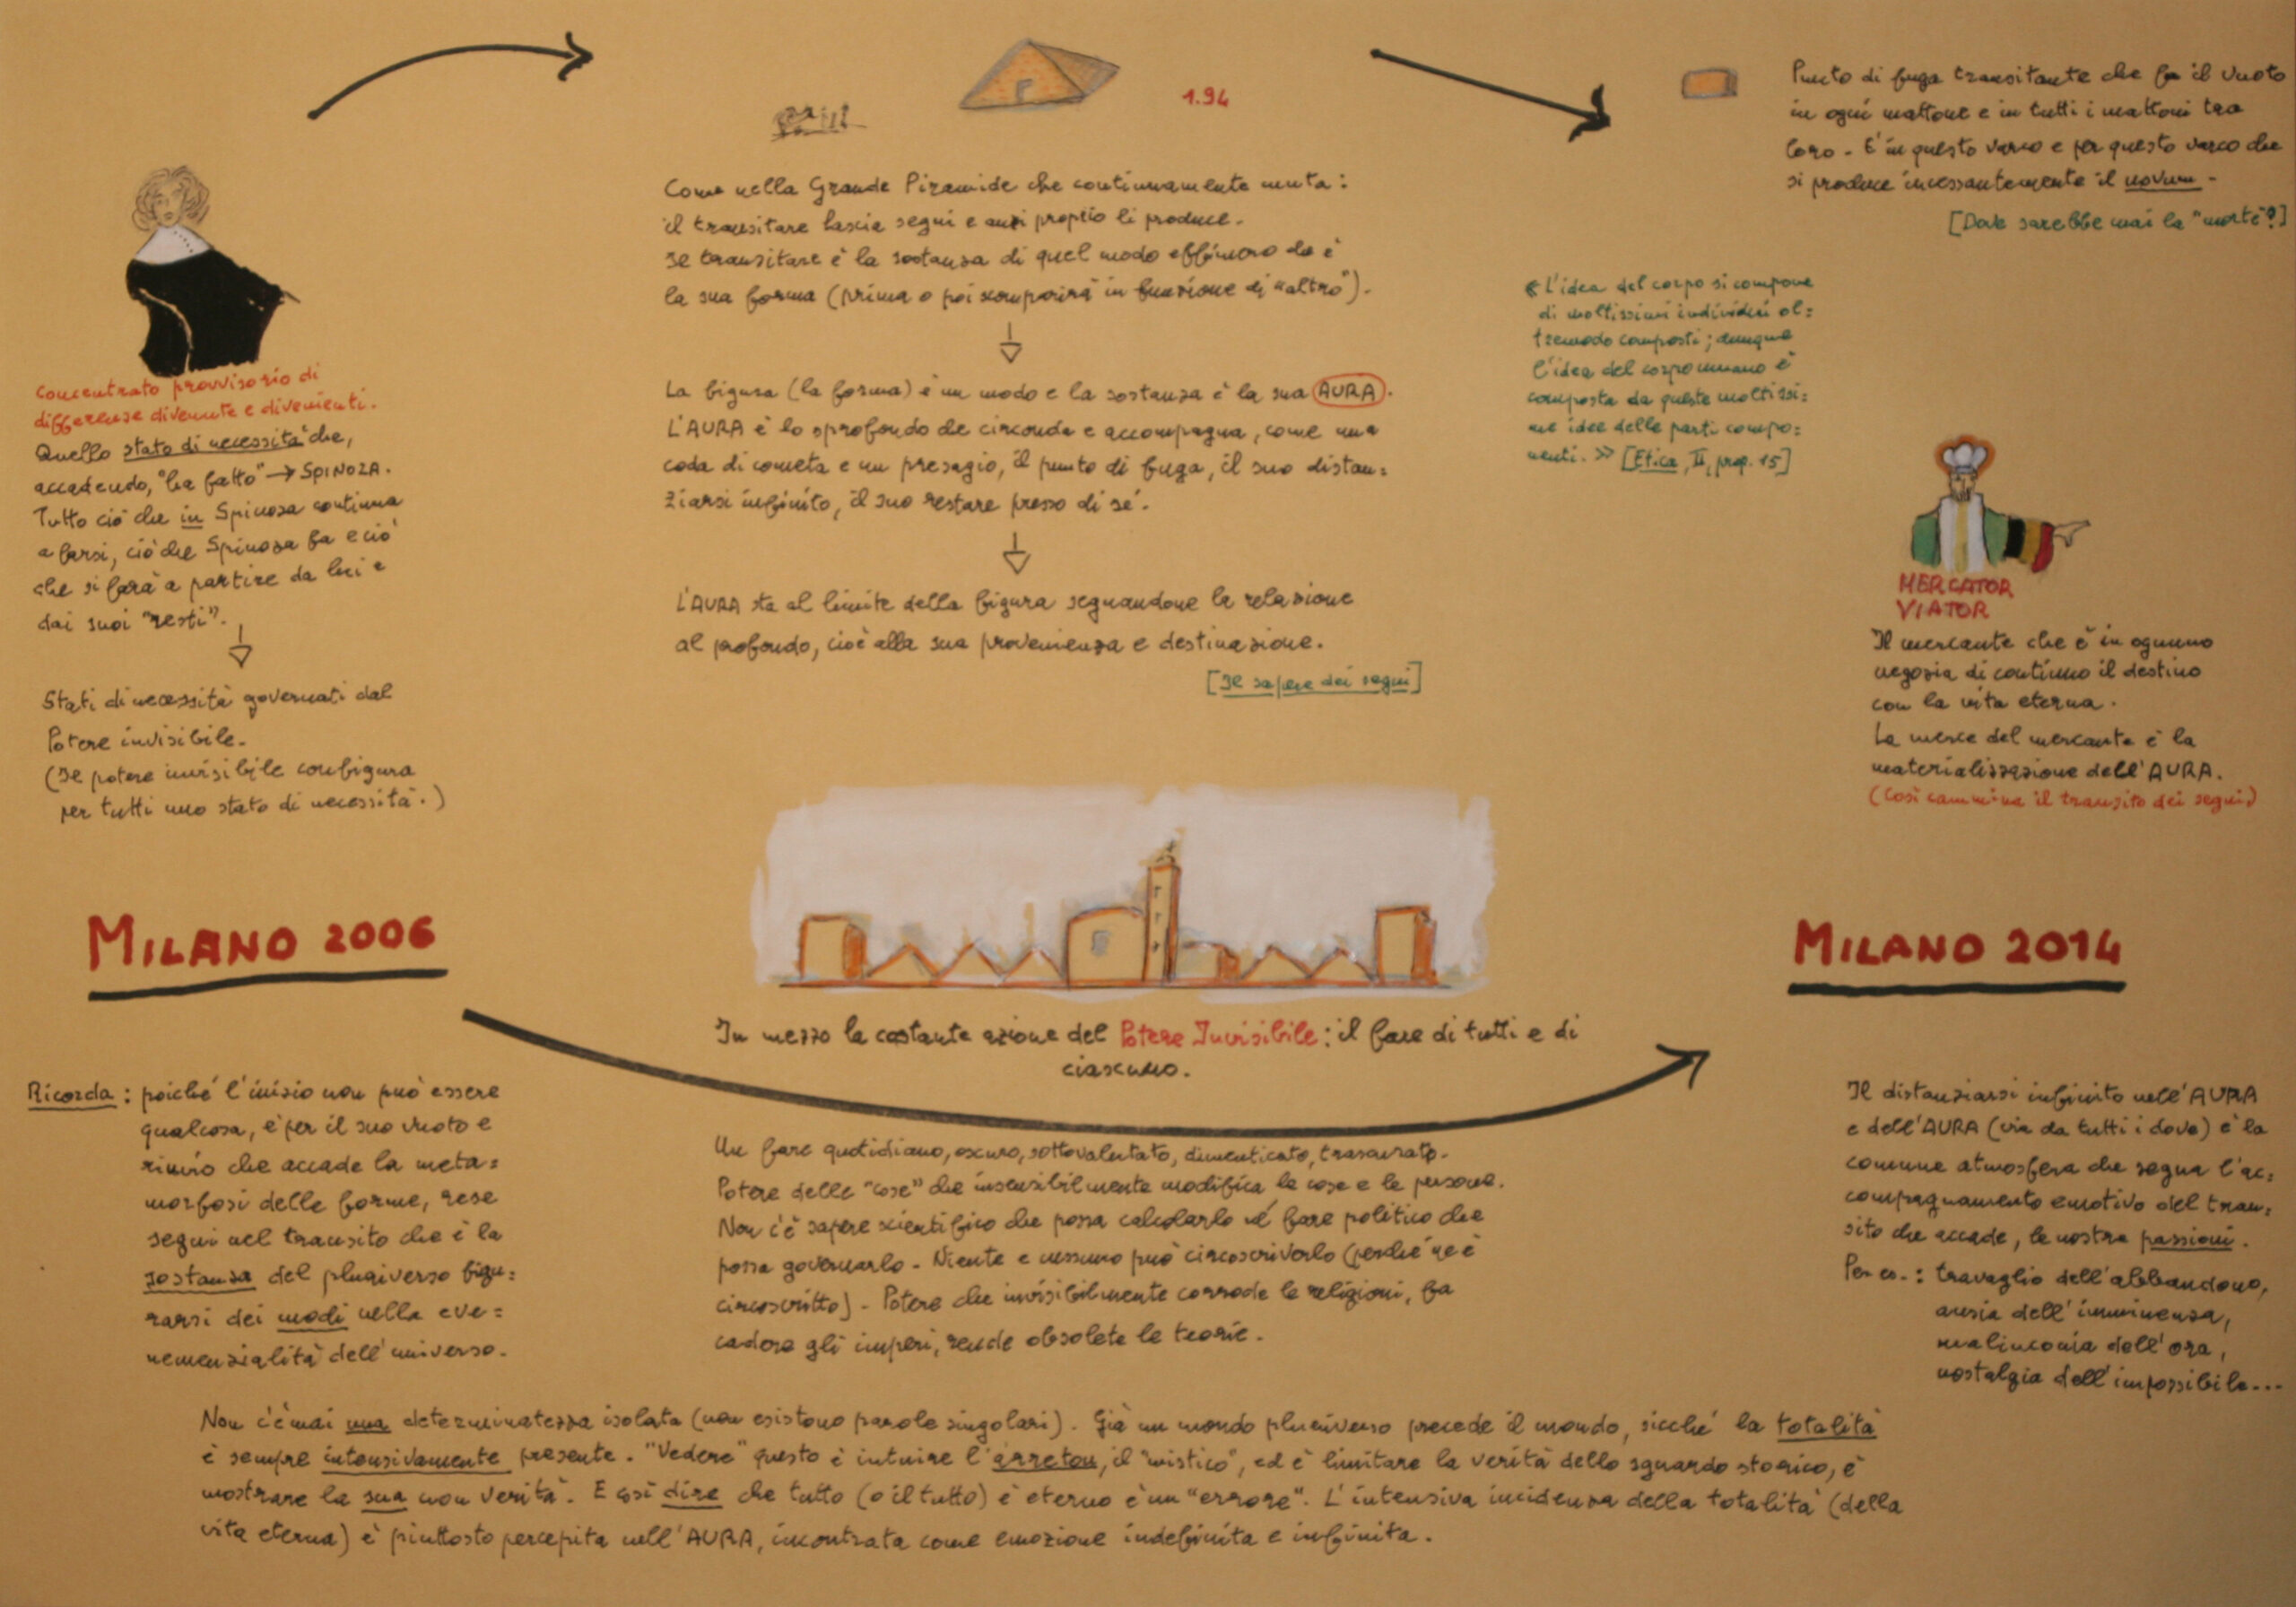 1.94
Come nella Grande Piramide che continuamente muta:
il transitare lascia segni e anzi proprio li produce.
Il transitare è la sostanza di quel modo effimero che è
la sua forma (prima o poi scomparirà in funzione di "altro").
La figura (la forma) è un modo e la sostanza è la sua AURA.
L'AURA è lo sprofondo che circonda e accompagna, come una
coda di cometa e un presagio, il punto di fuga, il suo distan=
ziarsi infinito, il suo restare presso di sé.
L'AURA sta al limite della figura segnandone la relazione
al profondo, cioè alla sua provenienza e destinazione.
[Il sapere dei segni]
Concentrato provvisorio di
differenze divenute e divenienti.
Quello stato di necessità che,
accadendo, "ha fatto" → SPINOZA.
Tutto ciò che in Spinoza continua
a farsi, ciò che Spinoza fa e ciò
che si farà a partire da lui e
dai suoi "resti".
Stati di necessità governati dal
Potere invisibile.
(Il potere invisibile configura
per tutti uno stato di necessità.)
Punto di fuga transitante che fa il vuoto
in ogni mattone e in tutti i mattoni tra
loro - E' in questo varco e per questo varco che
si produce incessantemente il novum -
[Dove sarebbe mai la "morte"?]
« L'idea del corpo si compone
di moltissimi individui ol=
tremodo composti; dunque
l'idea del corpo umano è
composta da queste moltissi=
me idee delle parti compo=
nenti. » [Etica, II, prop. 15]
MERCATOR
VIATOR
Il mercante che è in ognuno
negozia di continuo il destino
con la vita eterna.
La merce del mercante è la
materializzazione dell'AURA.
(Così cammina il transito dei segni)
MILANO 2006
MILANO 2014
In mezzo la costante azione del Potere Invisibile: il fare di tutti e di
ciascuno.
Ricorda: poiché l'inizio non può essere
qualcosa, è per il suo vuoto e
rinvio che accade la meta=
morfosi delle forme, rese
segni nel transito che è la
sostanza del pluriverso figu=
rarsi dei modi nella eve=
nemenzialità dell'universo.
Un fare quotidiano, oscuro, sottovalutato, dimenticato, trascurato.
Potere delle "cose" che insensibilmente modifica le cose e le persone.
Non c'è sapere scientifico che possa calcolarlo né fare politico che
possa governarlo - Niente e nessuno può circoscriverlo (perché ne è
circoscritto) - Potere che invisibilmente corrode le religioni, fa
cadere gli imperi, rende obsolete le teorie.
Il distanziarsi infinito nell'AURA
e dell'AURA (via da tutti i dove) è la
comune atmosfera che segna l'ac=
compagnamento emotivo del tran=
sito che accade, le nostre passioni.
Per es.: travaglio dell'abbandono,
ansia dell'imminenza,
malinconia dell'ora,
nostalgia dell'impossibile...
Non c'è mai una determinatezza isolata (non esistono parole singolari). Già un mondo pluriverso precede il mondo, sicché la totalità
è sempre intensivamente presente. "Vedere" questo è intuire l'arreton, il "mistico", ed è limitare la verità dello sguardo storico, è
mostrare la sua non verità. E così dire che tutto (o il tutto) è eterno è un "errore". L'intensiva incidenza della totalità (della
vita eterna) è piuttosto percepita nell'AURA, incontrata come emozione indefinita e infinita.